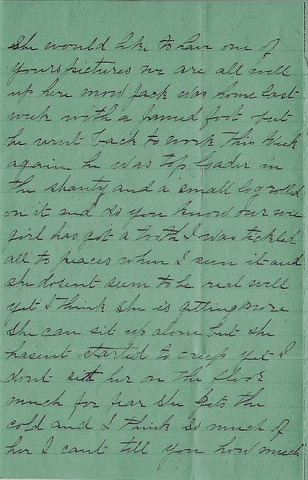 she would like to have one of
yours pictures we are all well
up here now Jack was home last
week with a jamed foot but
he went back to work this week
again he was top loader in
the shanty and a small log rolled
on it and do you know our wee
girl has got a tooth I was tickled
all to peaces when I seen it and
she dosent seem to be real well
yet I think she is getting more
she can sit up alone but she
hasent started to creep yet I
dont sett her on the floor
much for fear she gets the
cold and I think so much of
her I cant till you how much